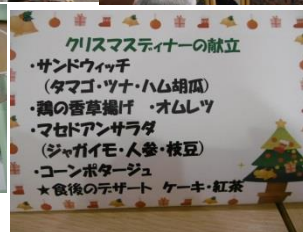 クリスマスディナーの献立
・サンドウィッチ
（タマゴ・ツナ・ハム胡瓜）
・鶏の香草揚げ ・オムレツ
・マセドアンサラダ
（ジャガイモ・人参・枝豆）
・コーンポタージュ
★食後のデザート ケーキ・紅茶